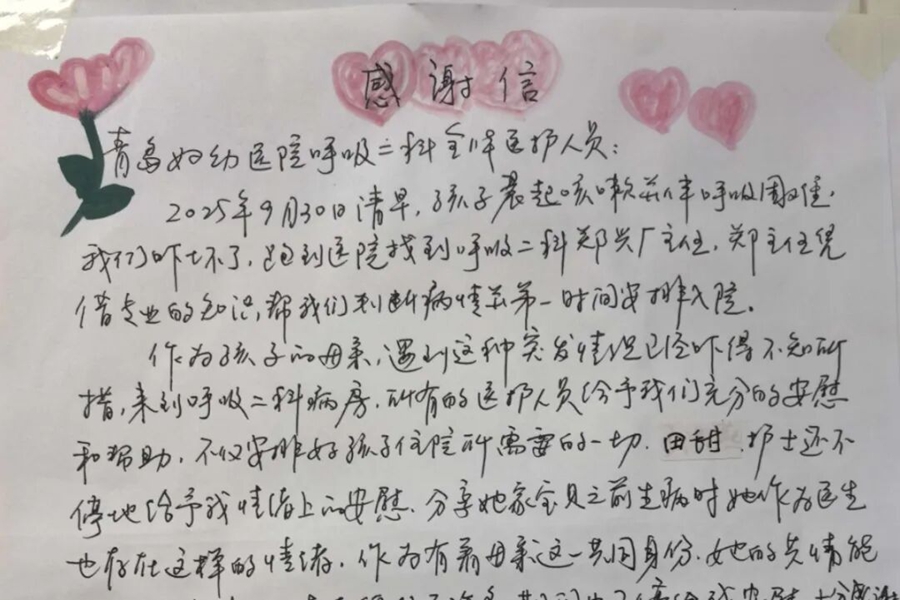 感谢信
青岛妇幼医院呼吸二科全体医护人员：
2025年9月30日清早，孩子晨起咳嗽并伴呼吸困难，
我们吓坏了，跑到医院找到呼吸二科郑兴厂主任，郑主任凭
借专业的知识，帮我们判断病情并第一时间安排入院。
作为孩子的母亲，遇到这种突发情况已经吓得不知所
措，来到呼吸二科病房，所有的医护人员给予我们充分的安慰
和帮助，不仅安排好孩子住院所需要的一切，田甜护士还不
停地给予我情绪上的安慰，分享她家宝贝之前生病时她作为医生
也存在这样的情绪，作为有着母亲这一共同身份，她的共情能